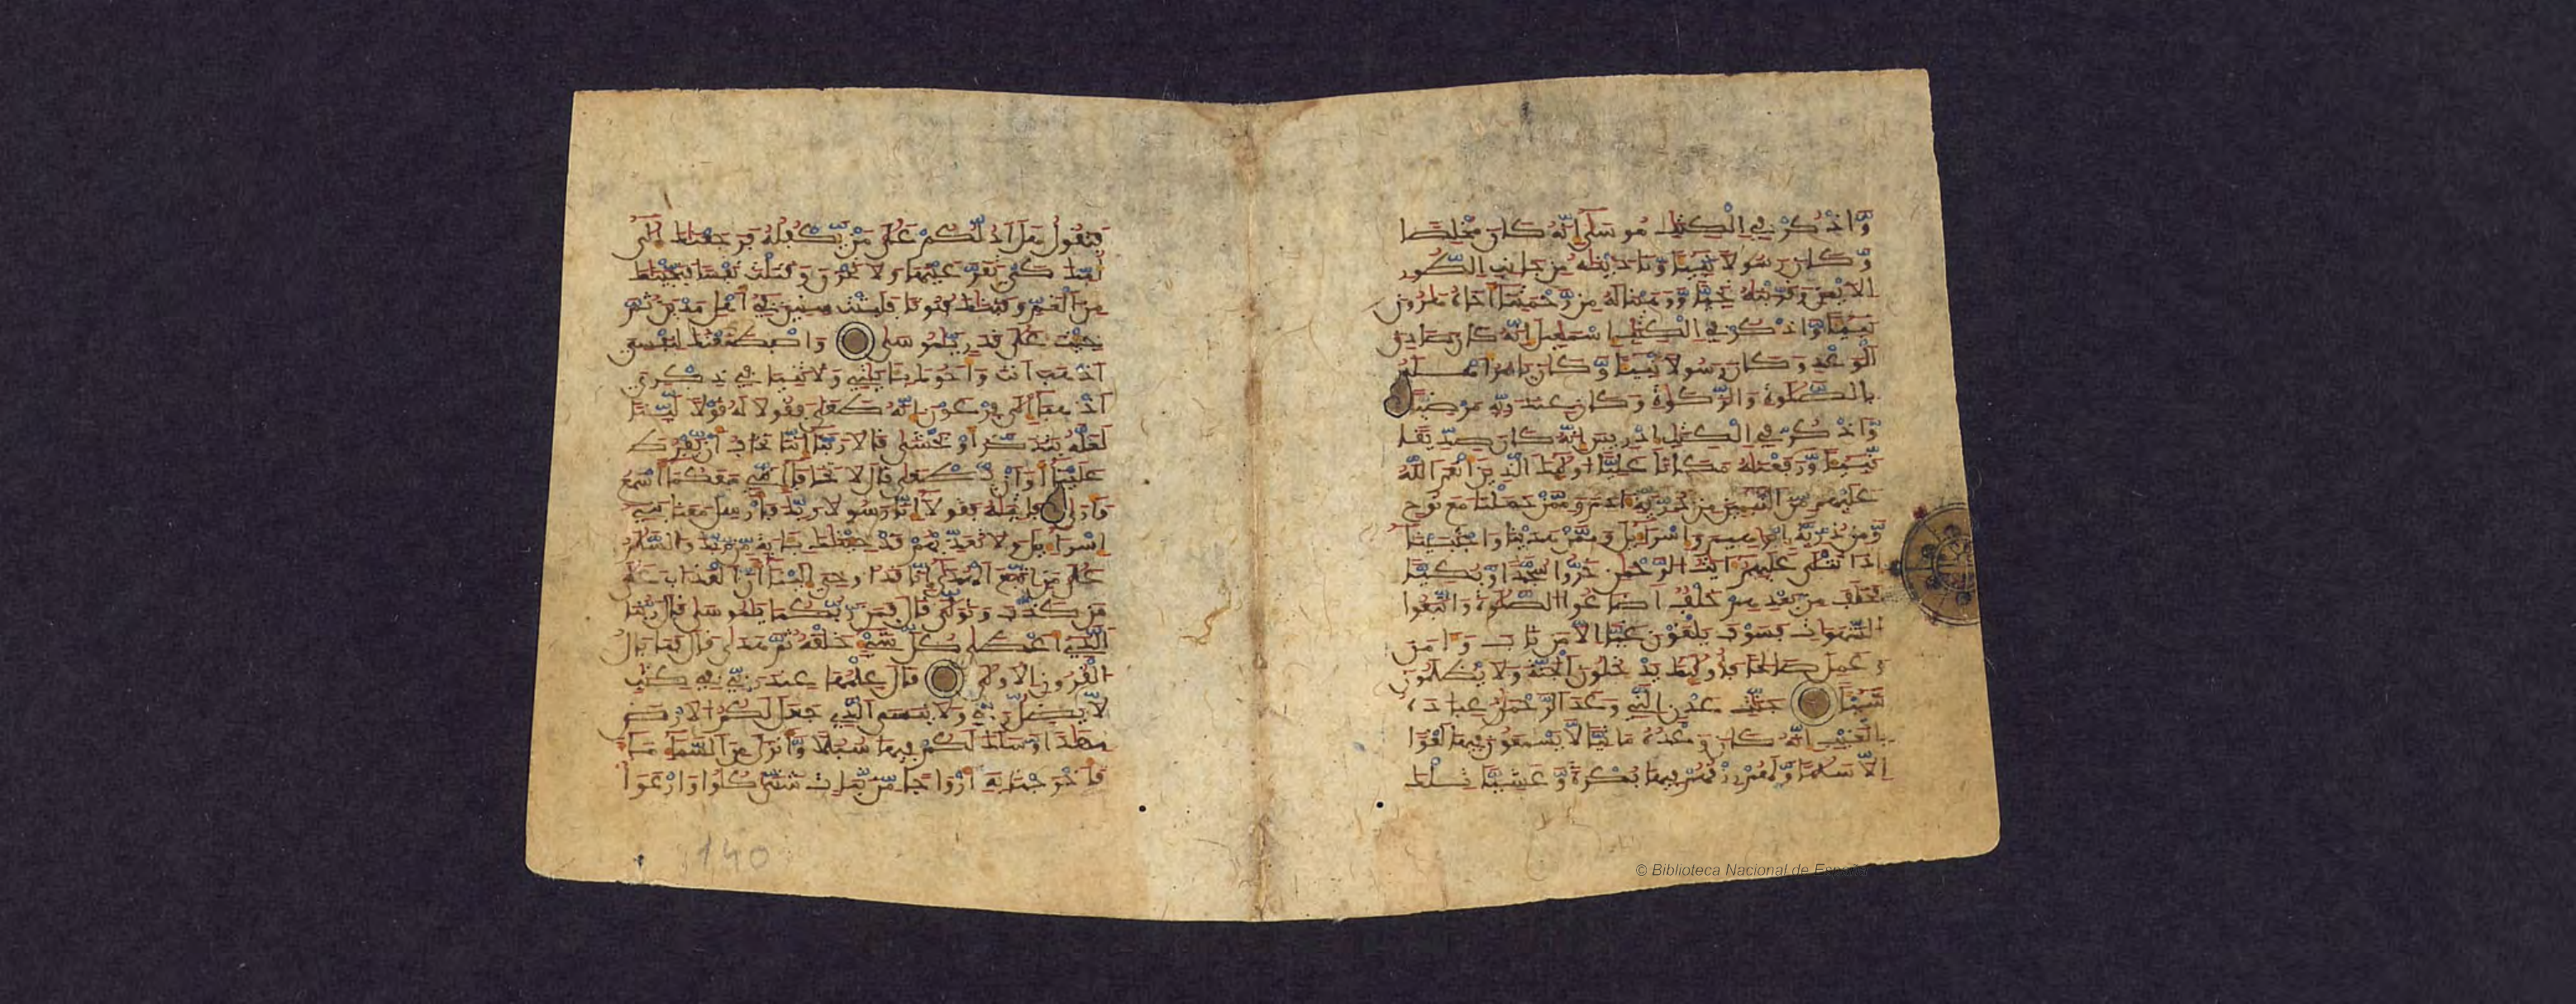 واذكر في الكتب موسى انه كان مخلصا
وكان رسولا نبيا وندينه من جانب الطور
الايمن وقربنه نجيا ووهبنا له من رحمتنا اخاه هرون
نبيا واذكر في الكتب اسمعيل انه كان صادق
الوعد وكان رسولا نبيا وكان يامر اهله
بالصلوة والزكوة وكان عند ربه مرضيا
واذكر في الكتب ادريس انه كان صديقا
نبيا ورفعنه مكانا عليا اولئك الذين انعم الله
عليهم من النبيين من ذرية ادم وممن حملنا مع نوح
ومن ذرية ابرهيم واسرايل وممن هدينا واجتبينا
اذا تتلى عليهم ايت الرحمن خروا سجدا وبكيا
فخلف من بعدهم خلف اضاعوا الصلوة واتبعوا
الشهوات فسوف يلقون غيا الا من تاب وامن
وعمل صالحا فاولئك يدخلون الجنة ولا يظلمون
شيئا جنت عدن التي وعد الرحمن عباده
بالغيب انه كان وعده ماتيا لا يسمعون فيها لغوا
الا سلما ولهم رزقهم فيها بكرة وعشيا تلك
فتقول هل ادلكم على من يكفله فرجعنك الى
امك كي تقر عينها ولا تحزن وقتلت نفسا فنجينك
من الغم وفتنك فتونا فلبثت سنين في اهل مدين ثم
جئت على قدر يموسى واصطنعتك لنفسي
اذهب انت واخوك بايتي ولا تنيا في ذكري
اذهبا الى فرعون انه طغى فقولا له قولا لينا
لعله يتذكر او يخشى قالا ربنا اننا نخاف ان يفرط
علينا او ان يطغى قال لا تخافا انني معكما اسمع
وارى فاتيه فقولا انا رسولا ربك فارسل معنا بني
اسرايل ولا تعذبهم قد جئنك باية من ربك والسلم
على من اتبع الهدى انا قد اوحي الينا ان العذاب على
من كذب وتولى قال فمن ربكما يموسى قال ربنا
الذي اعطى كل شيء خلقه ثم هدى قال فما بال
القرون الاولى قال علمها عند ربي في كتب
لا يضل ربي ولا ينسى الذي جعل لكم الارض
مهدا وسلك لكم فيها سبلا وانزل من السماء ماء
فاخرجنا به ازواجا من نبات شتى كلوا وارعوا
140
© Biblioteca Nacional de España